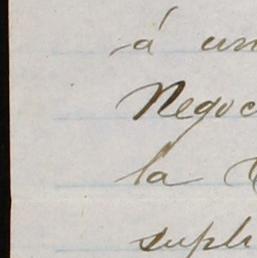 á un
Negoc
la
supli